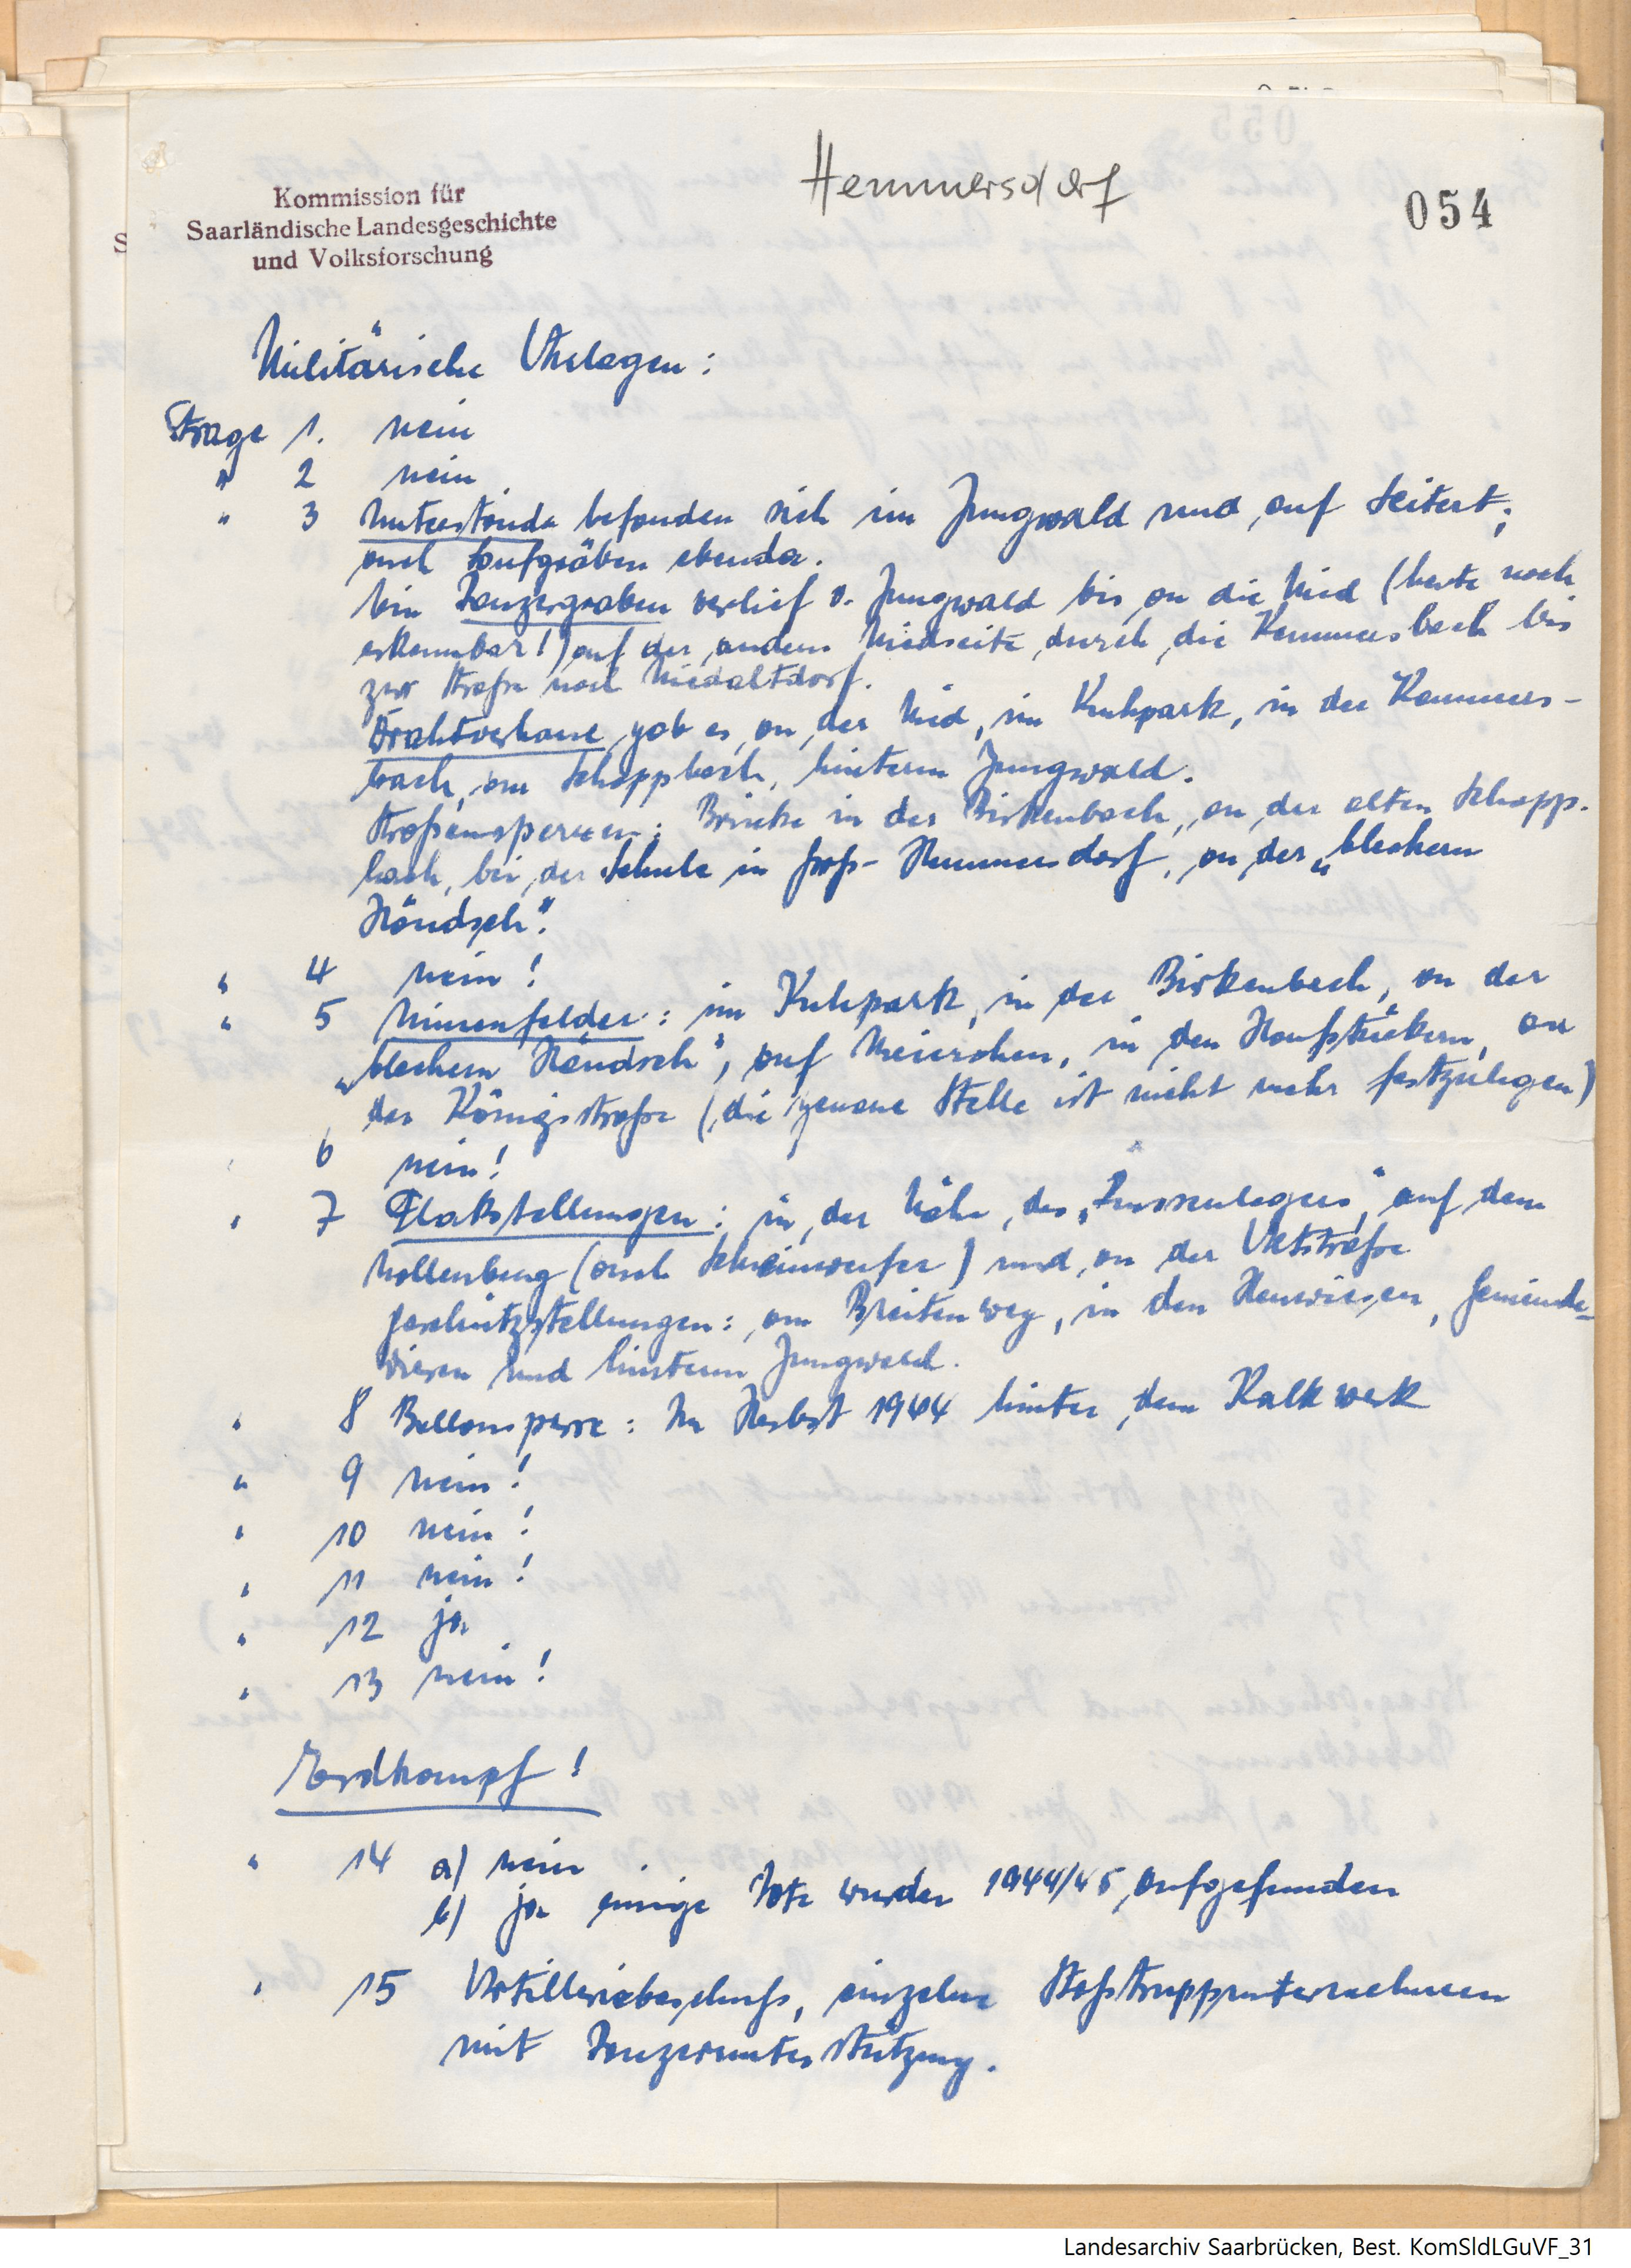 Hemmersdorf
054
Kommission für
Saarländische Landesgeschichte
und Volksforschung
Militärische Anlagen:
Frage 1. nein
" 2 nein
" 3 Unterstände befanden sich im Jungwald und auf Leitert;
auch Laufgräben ebenda.
Ein Panzergraben verlief v. Jungwald bis an die Nied (heute noch
erkennbar!) auf der andern Niedseite durch die Kemmesbach bis
zur Straße nach Niedaltdorf.
Drahtverhaue gab es an der Nied, im Kuhpark, in der Kemmes-
bach, am Schappbach, hinterm Jungwald.
Straßensperren: Brücke in der Birkenbach, an der alten Schapp-
bach, bei der Schule in Groß-Hemmersdorf, an der „blechern
Händsch".
" 4 nein!
" 5 Minenfelder: im Kuhpark, in der Birkenbach, an der
„blechern Händsch", auf Meierchen, in den Hanfstückern, an
der Königsstraße (die genaue Stelle ist nicht mehr festzulegen)
" 6 nein!
" 7 Flakstellungen: in der Nähe des „Russenlagers", auf dem
Mollenberg (auch Scheinwerfer) und an der
Geschützstellungen: am Breitenweg, in den Heuwiesen, Gemeinde-
wiesen und hinterm Jungwald.
" 8 Ballonsperre: Im Herbst 1944 hinter dem Kalkwerk
" 9 nein!
" 10 nein!
" 11 nein!
" 12 ja
" 13 nein!
Erdkampf!
" 14 a) nein
b) ja einige Tote wurden 1944/45 aufgefunden
" 15 Artilleriebeschuß, einzelne Stoßtruppunternehmen
mit Panzerunterstützung.
Landesarchiv Saarbrücken, Best. KomSldLGuVF_31